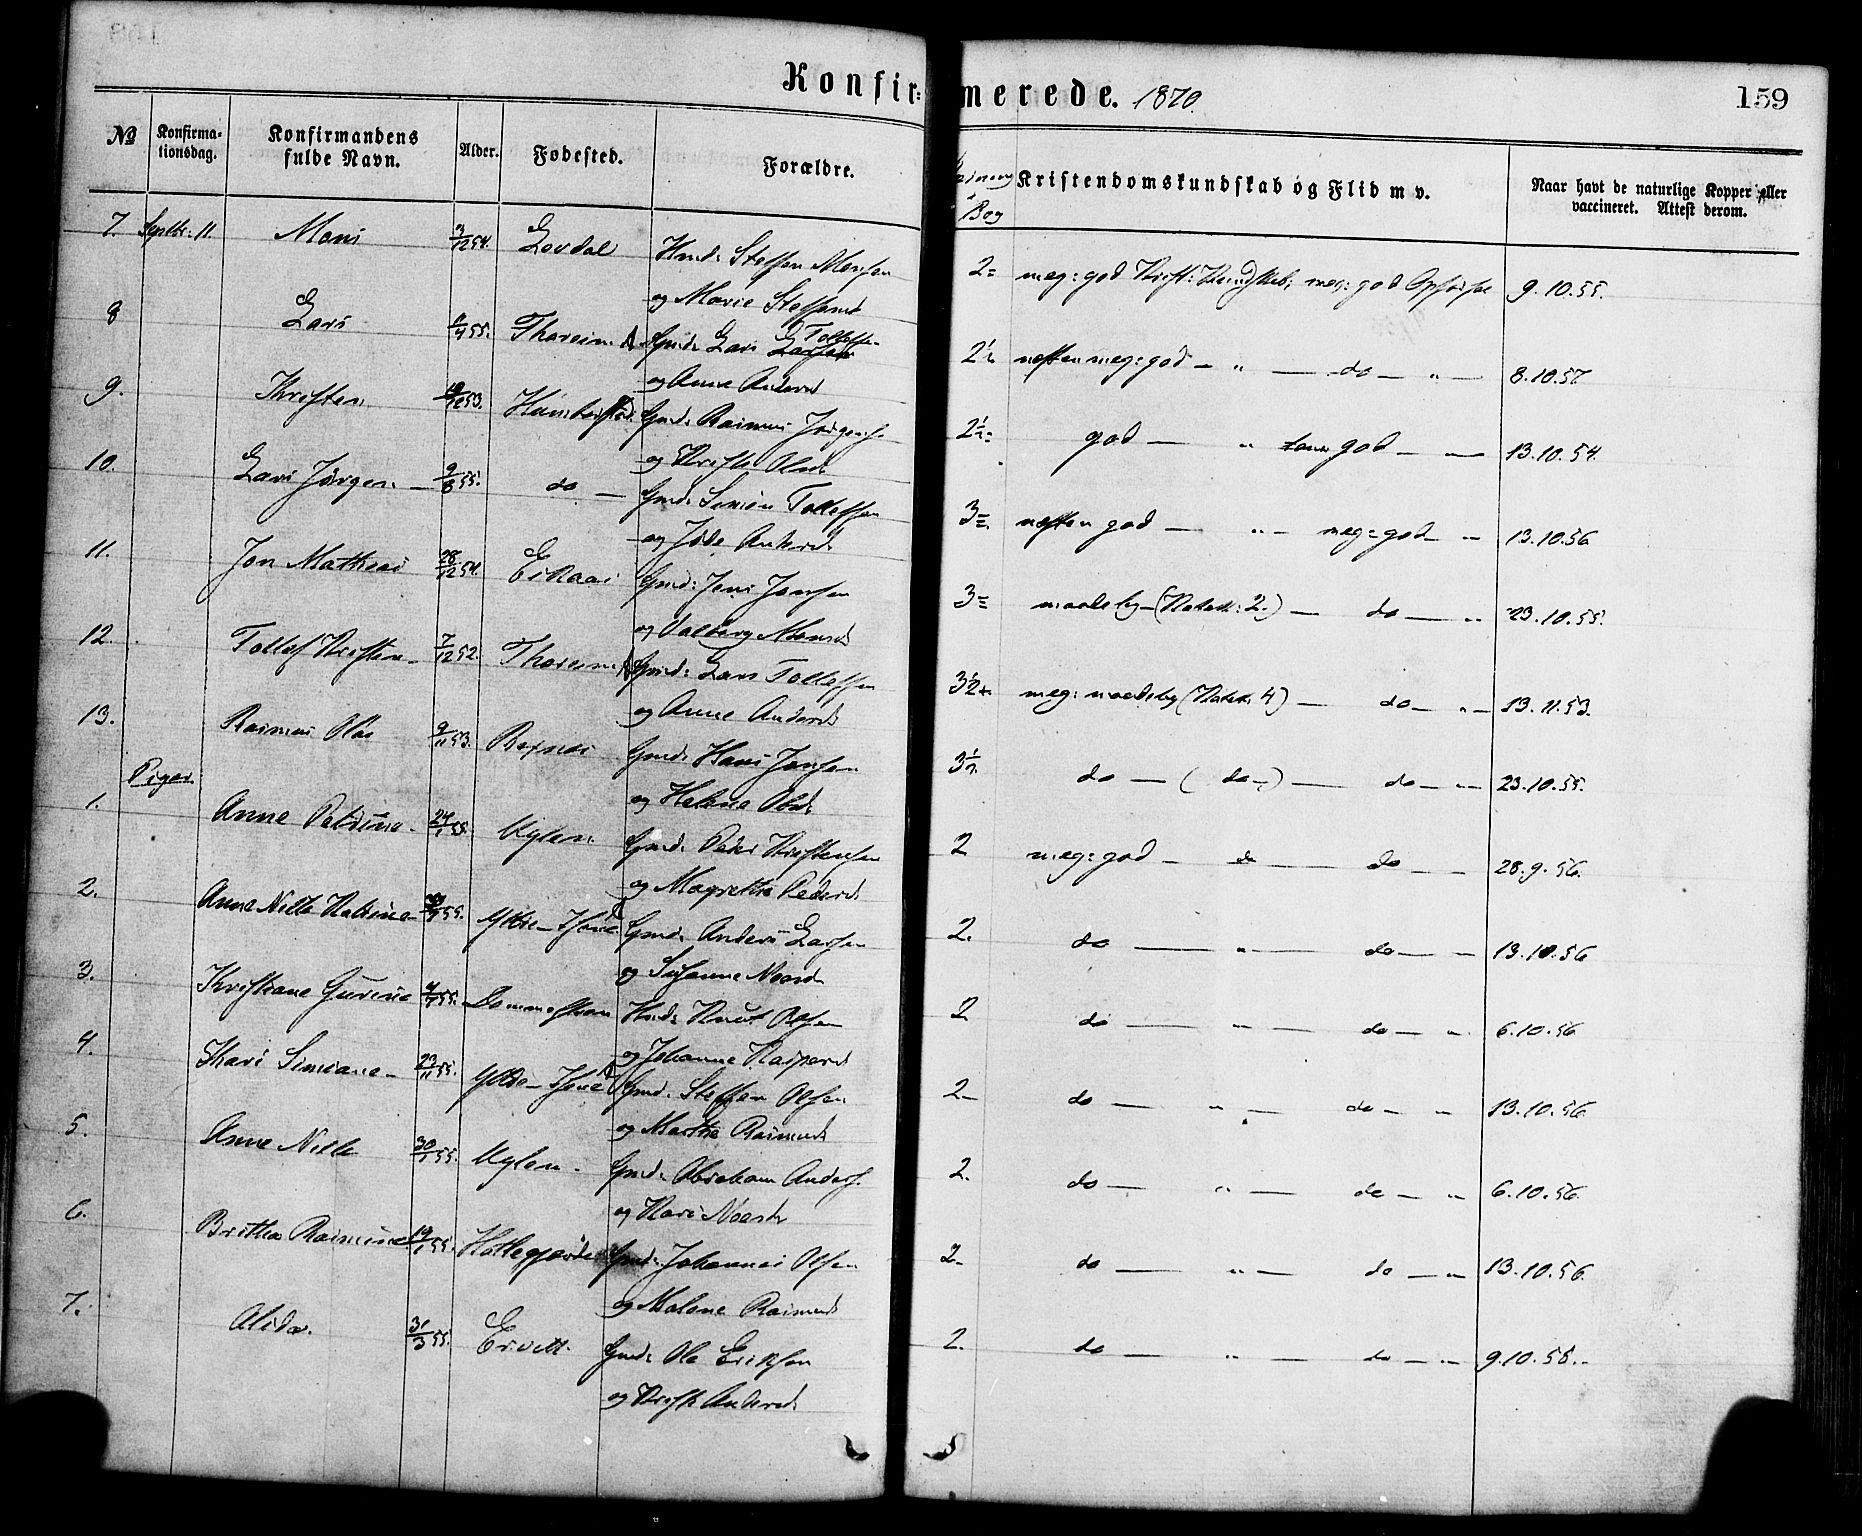 Konfirmerede. 1870. 159
№ Konfirmationsdag. Konfirmandens fulde Navn. Alder. Fødested. Forældre. Bog Kristendomskundskab og Flid m v. Naar havt de naturlige Kopper eller vaccineret. Attest derom.
7. Septbr. 11. Mons 3/12 54. Lovdal Hmd: Steffen Monsen
og Marie Steffensd 2= meg: god Krist: Kundskab; meg: god Opførsel 9.10.55.
8 Lars 55. Thoreim Gmd: Lars Tollefsen
og Anne Andersd 2½ næsten meg: god — " — do — " — 8.10.57
9. Kristen 53. Gmd: Rasmus Jørgens.
og Kristi Olsd 2½= god — " god — — 13.10.54.
10. Lars Jørgen — 9/8 55. do — Gmd: Simon Tollefsen
og Andersd 3= næsten god — " — meg: god — " 13.10.56
11. Jon Mathias 28/12 54. Eikaas Gmd: Jens Jonsen
og Valborg Monsd 3= maadelig — (Katek: 2.) — do — " 23.10.55.
12. Tollef Kristen — 7/12 52. Thoreim Gmd: Lars Tollefsen
og Anne Andersd 3½ meg: maadelig (Katek: 4) — do — " — 13.11.53.
13. Rasmus Olai 9/11 53. Gmd: Hans Jonsen
og Helene Olsd 3½ do — ( do — ) — do — " — 23.10.55.
Piger.
1. Anne Petrine — 24/1 55. Myklen Gmd: Peder Kristensen
og Magrethe Pedersd 2 meg: god — do — do — — 28.9.56.
2. Anne Nille Katrine — 55. Ytre- Gmd: Anders Larsen
og Susanne Noasd 2. do — " — do — — 13.10.56
3. Kristiane Gurine 55. Hmd: Knut Olsen
og Johanne Kaspersd 2. do — " — do — " 6.10.56
4. Kari Simiane — 23/11 55. Gmd: Steffen Olsen
og Marthe Rasmusd 2 — do — " — do — " 13.10.56
5. Anne Nille 30/1 55. Myklen. Gmd: Abraham Anders.
og Kari Noasd 2. do — " — do — " 6.10.56
6. Britha Rasmine 19/1 55. Hattegjerde Gmd: Johannes Olsen
og Malene Rasmusd 2. do — " — do — " 13.10.56
7. Alida. 31/3 55. Ervik. Gmd: Ole Eriksen
og Kristi Andersd. 2. do — " — do — " — 9.10.55. —